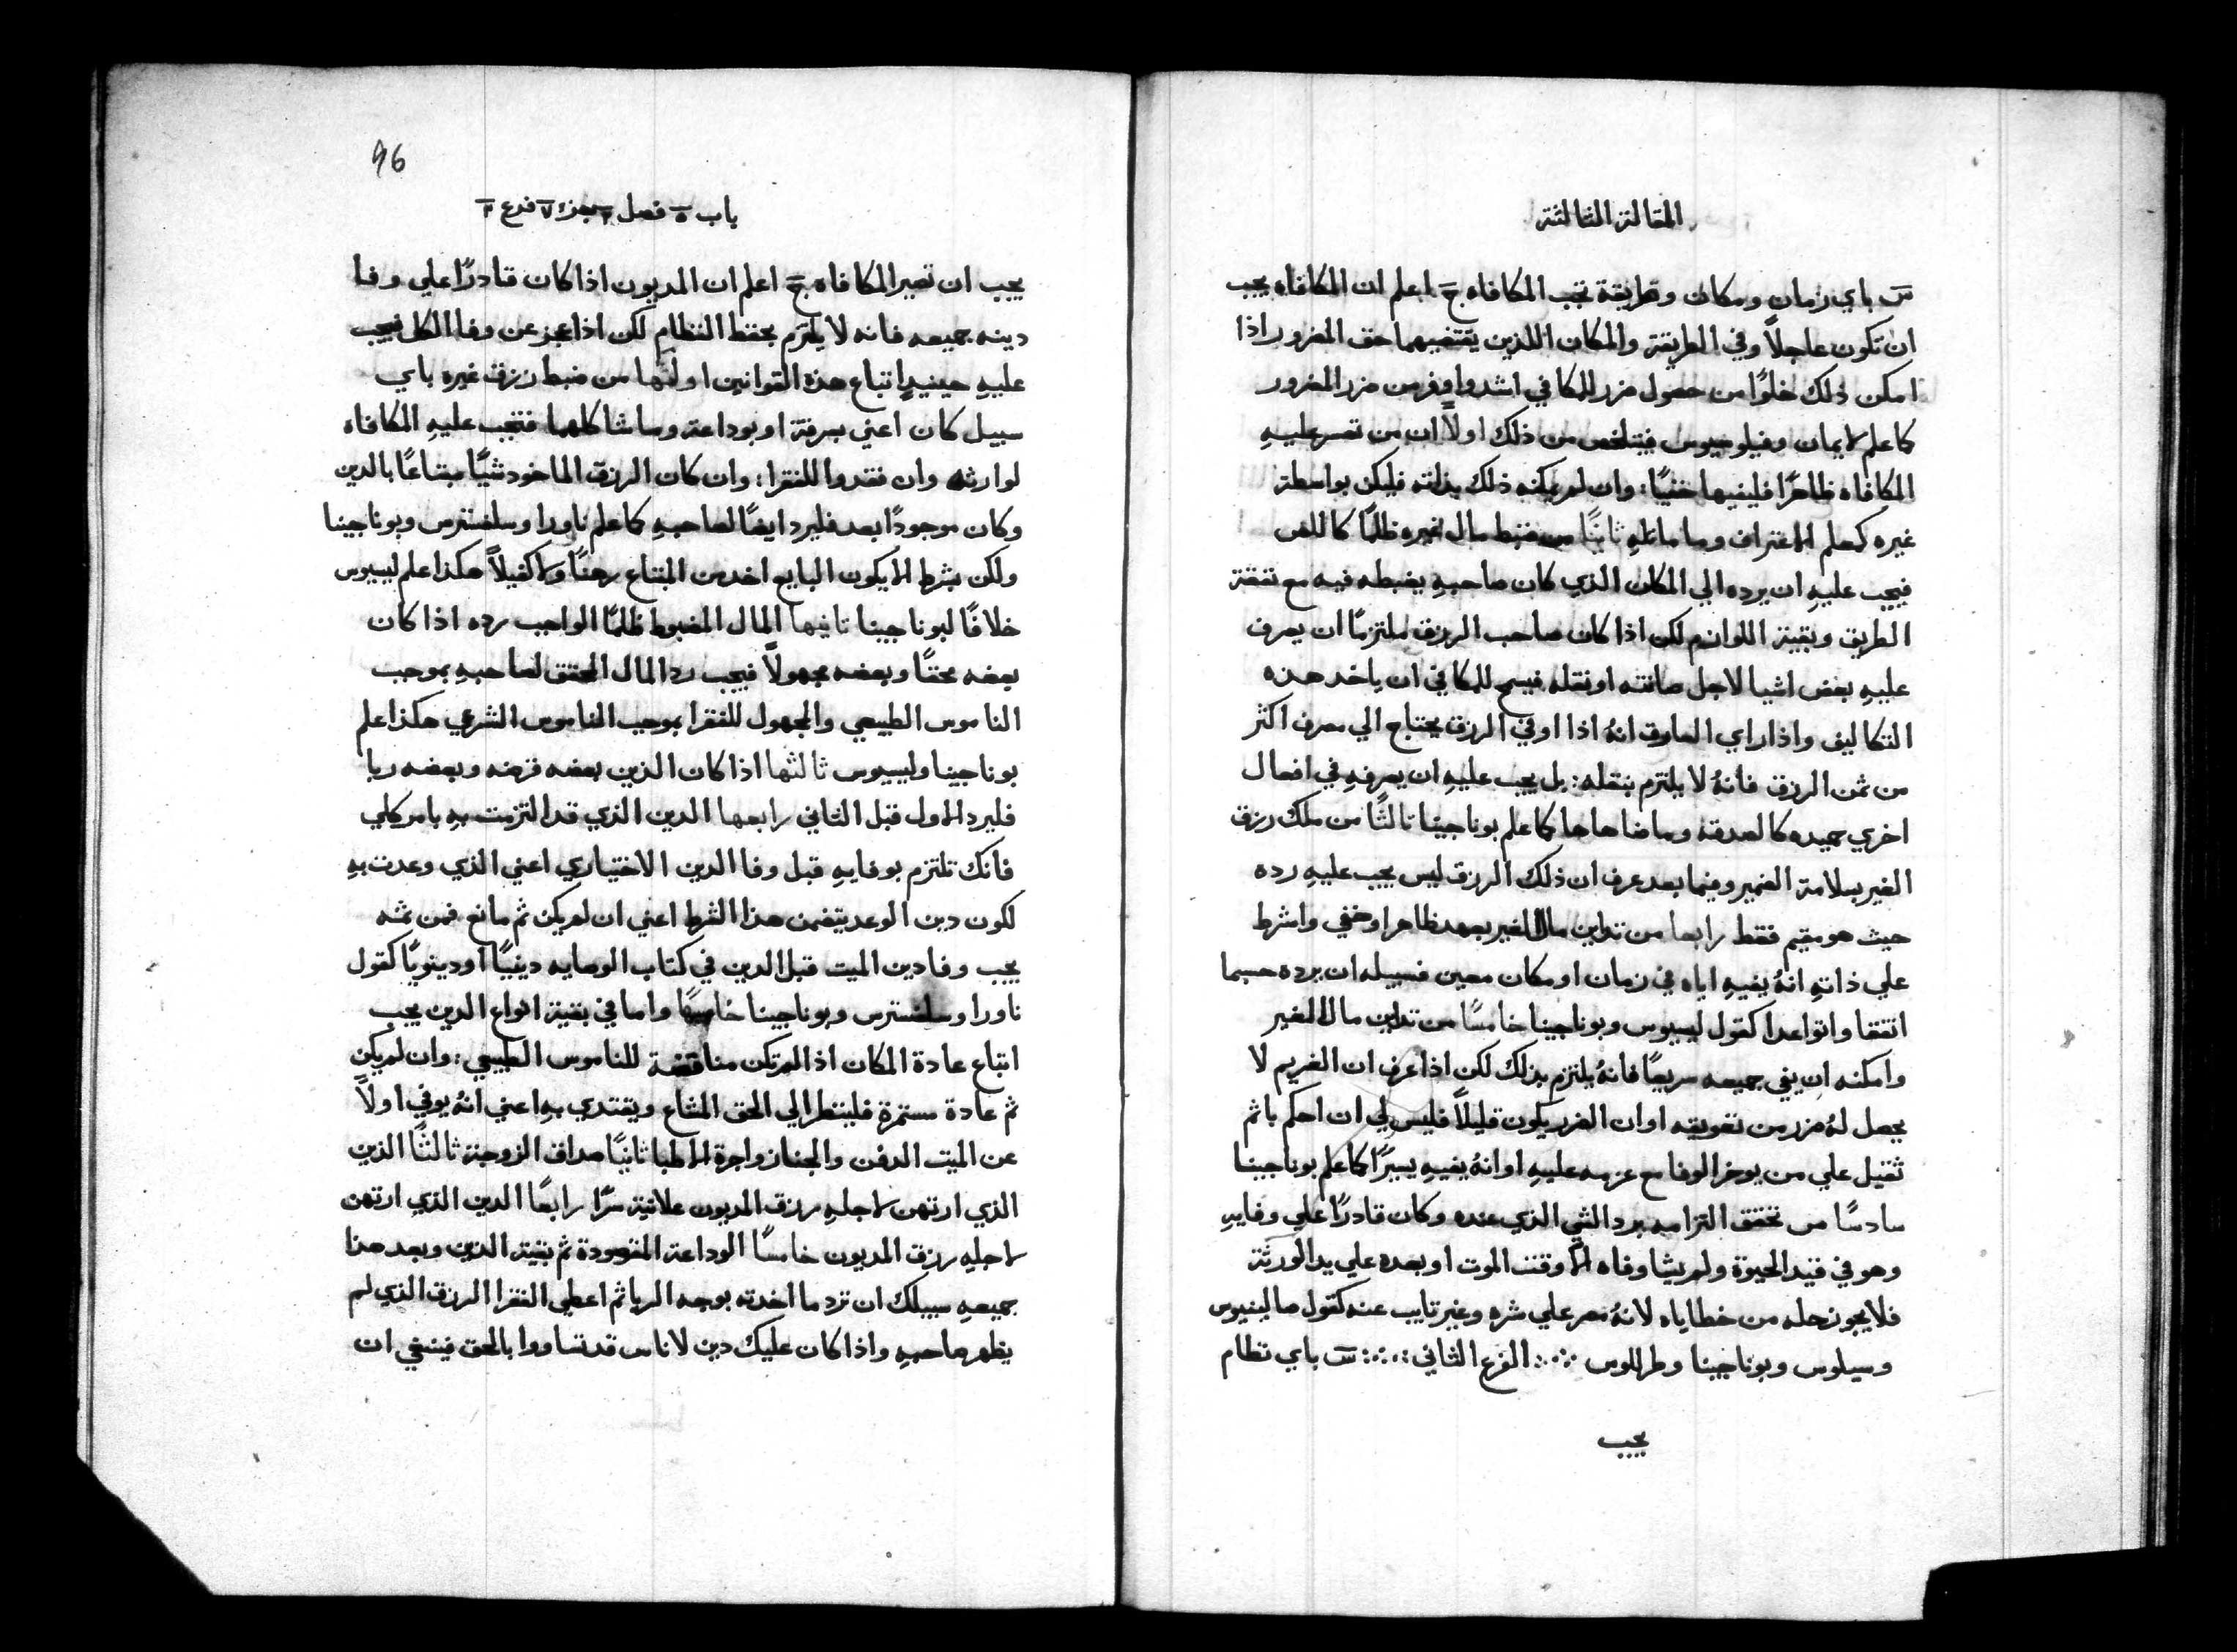 المقالة الثالثة
س باي زمان ومكان وطريقة تجب المكافاه ج اعلم ان المكافاه يجب
ان تكون عاجلاً وفي الطريقة والمكان اللذين يقتضيهما حق المضرور اذا
امكن ذلك خلوًا من حصول ضرر للمكافي اشد واوفر من ضرر المضرور
كما علم لايمان وفيلوسيوس فيتلخص من ذلك اولاً ان من تعسر عليهِ
المكافاه ظاهرًا فليفيها خفيًا: وان لم يمكنه ذلك بذاته فليكن بواسطة
غيره كمعلم الاعتراف وما ماثلهِ ثانيًا من ضبط مال غيره ظلمًا كاللص
فيجب عليهِ ان يرده الي المكان الذي كان صاحبهِ يضبطه فيه مع نفقة
الطريق وبقية اللوازم لكن اذا كان صاحب الرزق ملتزمًا ان يصرف
عليهِ بعض اشيا لاجل صيانته او نقله فيسمح للمكافي ان ياخد هذه
التكاليف واذا راي السارق انهُ اذا اوفي الرزق يحتاج الي مصرف اكثر
من ثمن الرزق فانهُ لا يلتزم بنقله: بل يجب عليهِ ان يصرفهِ في افعال
اخري حميده كالصدقة وما ضاهاها كما علم بوناجينا ثالثًا من ملك رزق
الغير بسلامة الضمير وفيما بعد عرف ان ذلك الرزق ليس يجب عليهِ رده
حيث هو مقيم فقط رابعا من تداين مال الغير بعهد ظاهر او خفي واشرط
علي ذاتهِ انهُ يفيهِ اياه في زمان او مكان معين فسبيله ان يرده حسبما
اتفقا وتواعدا كقول ليسيوس وبوناجينا خامسًا من تداين مال الغير
وامكنه ان يفي جميعه سريعًا فانهُ يلتزم بذلك لكن اذا عرف ان الغريم لا
يحصل لهُ ضرر من تعويقه او ان الضرر يكون قليلاً فليس لي ان احكم باثم
ثقيل علي من يوخر الوفا مع عزمه عليهِ او انهُ يفيهِ يسيرًا كما علم بوناجينا
سادسًا من تحقق التزامه برد الشي الذي عنده وكان قادرًا علي وفايهِ
وهو في قيد الحيوة ولم يشا وفاه الا وقت الموت او بعده علي يد الورثة
فلا يجوز حله من خطاياه لانهُ مصر علي شره وغير تايب عنه كقول صالينيوس
وسيلوس وبوناجينا وطرللوس الفرع الثاني س باي نظام
يجب
96
باب ٥ فصل ٢ جزء ٧ فرع ٢
يجب ان تصير المكافاه ج اعلم ان المديون اذا كان قادرًا علي وفا
دينه جميعه فانه لا يلتزم بحفظ النظام لكن اذا عجز عن وفا الكل فيجب
عليهِ حينيدٍ اتباع هذه القوانين اولها من ضبط رزق غيره باي
سبيل كان اعني بسرقة او بوداعة وما شاكلهما فتجب عليهِ المكافاه
لوارثه وان فقدوا للفقرا: وان كان الرزق الماخود شيًا مبتاعًا بالدين
وكان موجودًا بعد فليرد ايضًا لصاحبهِ كما علم ناورا وسلفسترس وبوناجينا
ولكن بشرط الا يكون البايع اخد من المبتاع رهنًا ولا كفيلاً هكذا علم ليسيوس
خلافًا لبوناجينا ثانيها المال المضبوط ظلمًا الواجب رده اذا كان
بعضه محققًا وبعضه مجهولاً فيجب رد المال المحقق لصاحبهِ بموجب
الناموس الطبيعي والمجهول للفقرا بموجب الناموس الشرعي هكذا علم
بوناجينا وليسيوس ثالثها اذا كان الدين بعضه قرضه وبعضه ربا
فليرد الاول قبل الثاني رابعها الدين الذي قد التزمت بهِ بامر كلي
فانك تلتزم بوفايهِ قبل وفا الدين الاختياري اعني الذي وعدت بهِ
لكون دين الوعد يتضمن هذا الشرط اعني ان لم يكن ثم مانع فمن ثمه
يجب وفا دين الميت قبل الدين في كتاب الوصايه دينيًا او دينويًا كقول
ناورا وسلفسترس وبوناجينا خامسًا واما في بقية انواع الدين يجب
اتباع عادة المكان اذا لم تكن مناقضة للناموس الطبيعي: وان لم يكن
ثم عادة مستمرة فلينظر الي الحق المشاع ويقتدي بهِ اعني انهُ يوفي اولاً
عن الميت الدفن والجناز واجرة الاطبا ثانيًا صداق الزوجة ثالثًا الدين
الذي ارتهن لاجلهِ رزق المديون علانية سرًا رابعًا الدين الذي ارتهن
لاجلهِ رزق المديون خامسًا الوداعة المفقودة ثم بقية الدين وبعد هذا
جميعهِ سبيلك ان ترد ما اخدته بوجه الربا ثم اعطي الفقرا الرزق الذي لم
يظهر صاحبهِ واذا كان عليك دين لاناس قد تساووا بالحق فينبغي ان